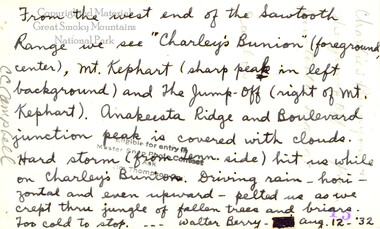 From the west end of the Sawtooth
Range we see "Charley's Bunion" (foreground
center), Mt. Kephart (sharp peak in left
background) and The Jump-Off (right of Mt.
Kephart). Anakeesta Ridge and Boulevard
junction peak is covered with clouds.
Hard storm (from Tenn. side) hit us while
on Charley's Bunion. Driving rain - hori-
zontal and even upward - pelted us as we
crept thru jungle of fallen trees and briars.
Too cold to stop. --- Walter Berry - Aug. 12 - '32
Copyrighted Material
Great Smoky Mountains
National Park
eligible for entry in
Master Snap Photo Contest
Thompson
CC Campbell
13